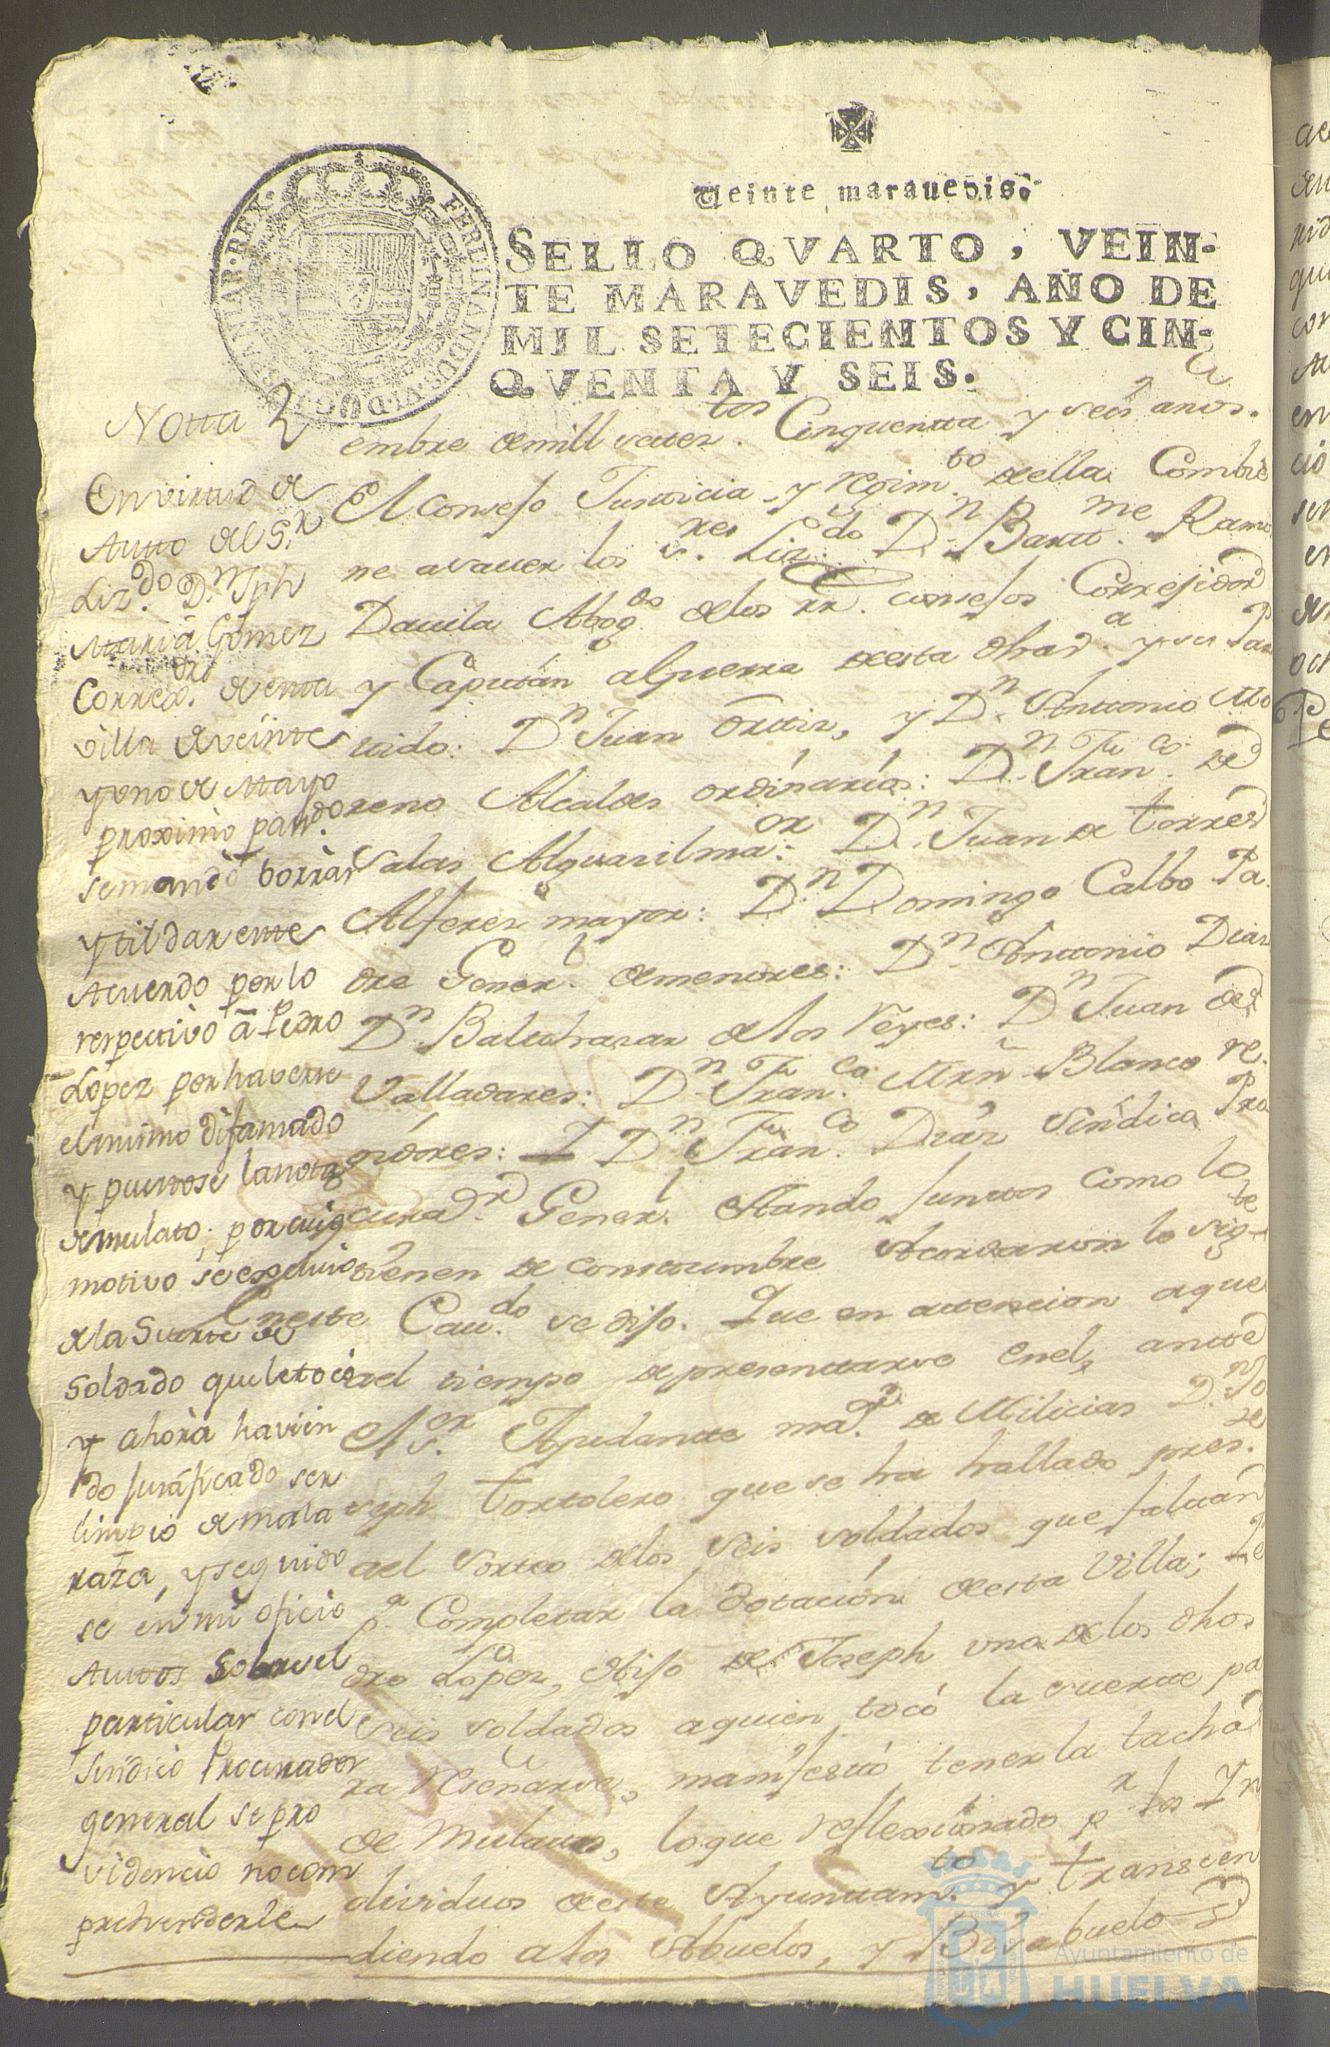 Veinte maravedis.
SELLO QVARTO, VEIN-
TE MARAVEDIS, AÑO DE
MIL SETECIENTOS Y CIN-
QVENTA Y SEIS.
FERDINANDUS VI D G HISPANIAR REX
Notta
En virtud de
Autto del S.r
Liz.do D.n Jph
Maria Gomez
Corre.dor de esta
villa de veinte
y uno de Mayo
proximo pas.do
se mandó borrar
y tildar este
Acuerdo por lo
respectivo â Pedro
Lopez por haverse
el mismo difamado
y puestose la nota
de mulato; por cuio
motivo se excluio
de la Suerte de
soldado que le tocó
y ahora havien
do justificado ser
limpio de mala
raza, y seguido
se en mi oficio
Auttos sobre el
particular con el
Sindico Procurador
general se pro
videncio no com
prehenderle
embre de mill setez.tos Cinquenta y seis años.
El Consejo Justicia y regim.to della Combie
ne a saver los s.res Liz.do D.n Bartt.me Ramo
Davila Abog.do de los rr. consejos Corregidor
y Capitan a guerra desta dha v.a y su Par
tido: D.n Juan Ortiz, y D.n Anttonio Mo
reno Alcaldes ordinarios: D.n Fran.co de
Salas Alguasil ma.or D.n Juan de torres
Alferez mayor: D.n Domingo Calbo Pa
dre Gener.l de menores: D.n Anttonio Diaz
D.n Balthasar de los Reyes: D.n Juan de
Valladares: D.n Fran.co Mrn Blanco re
gidores: I D.n Fran.co Diaz Sindico Pro
curad.r Gener.l Stando Juntos como lo
tienen de costumbre Acordaron lo sig.te
En este Cav.do se dijo. Que en attencion a que
al tiempo de presentarse en el, ante
el s.or Ayudante ma.or de Milicias D.n Jo
seph tortolero que se ha hallado pres.te
al Sorteo de los seis soldados que faltan
p.a Completar la dotacion desta Villa; Pe
dro Lopez, hijo de Joseph uno de los dhos
seis soldados a quien tocó la suerte pa
ra reseñarse, manifestó tener la tacha
de Mulato, lo que reflexionado p.r los In
dividuos deste Ayuntam.to y transcen
diendo a los Abuelos, y Bisabuelo
Ayuntamiento de
HUELVA